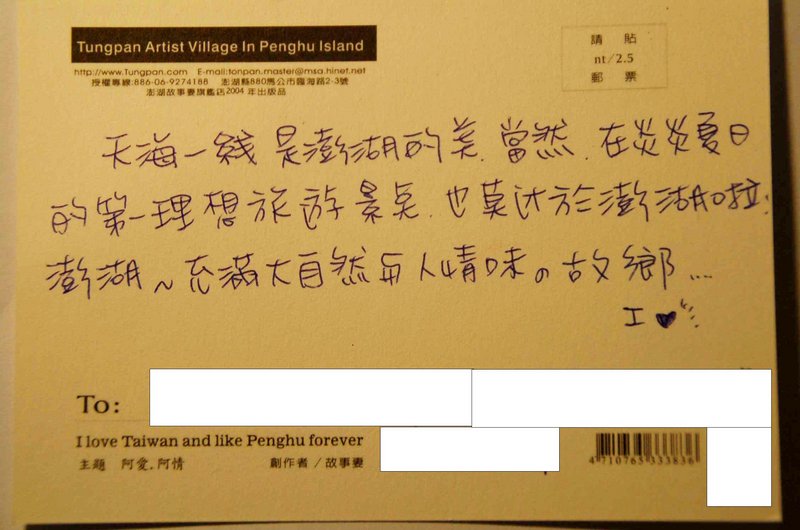 Tungpan Artist Village In Penghu Island
http://www.Tungpan.com E-mail:tonpan.master@msa.hinet.net
授權專線:886-06-9274188 澎湖縣880馬公市臨海路2-3號
澎湖故事妻旗艦店2004 年出版品
請 貼
nt/2.5
郵 票
天海一綫是澎湖的美.當然.在炎炎夏日
的第一理想旅遊景點.也莫过於澎湖啦.
澎湖~充滿大自然与人情味の故鄉...
I ♥
To:
I love Taiwan and like Penghu forever
主題 阿愛.阿情 創作者/故事妻
4 710765 333836